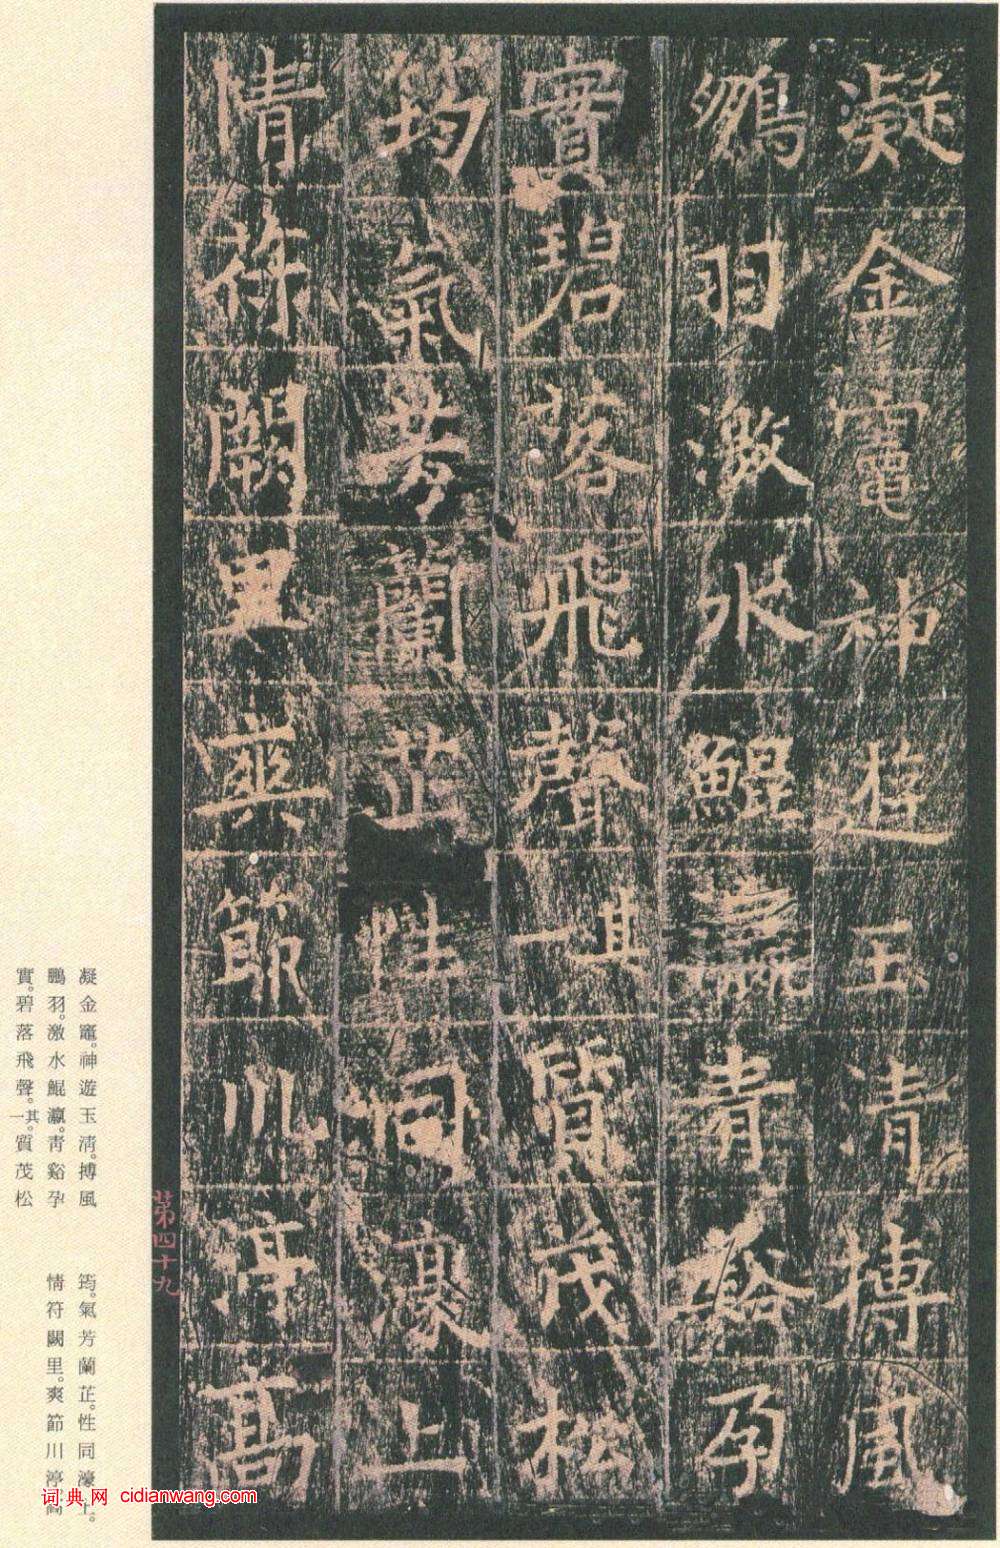 凝金竈神遊玉清搏風
鵬羽激水鯤瀛青谿孕
實碧落飛聲其一質茂松
筠氣芳蘭芷性同濠上
情符闕里爽節川渟高
第四十九
凝金竈。神遊玉清。搏風
鵬羽。激水鯤瀛。青谿孕
實。碧落飛聲。其一。質茂松
筠。氣芳蘭芷。性同濠上。
情符闕里。爽節川渟高
词典网 cidianwang.com